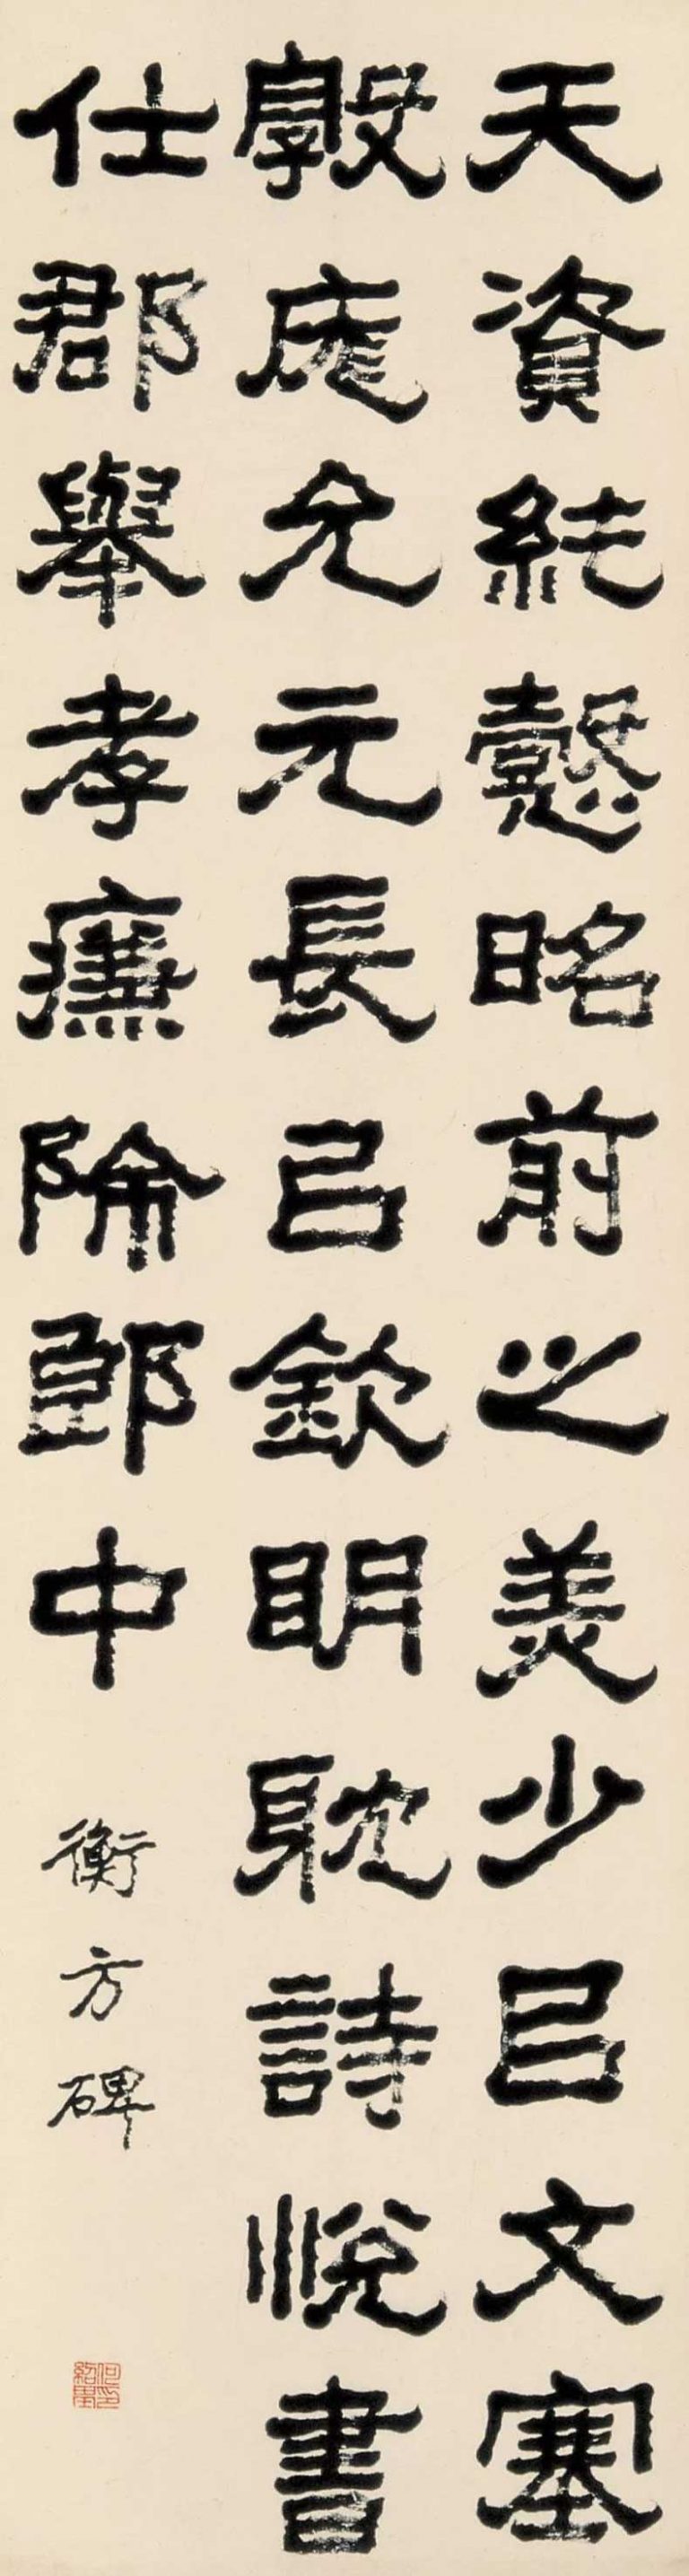 天資純懿昭前之美少㠯文塞
敦庬允元長㠯欽眀耽詩悅書
仕郡舉孝廉除郎中
衡方碑
何紹基印